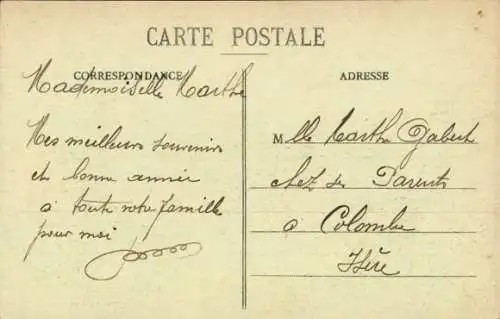 CARTE POSTALE
CORRESPONDANCE
Mademoiselle Marthe
Mes meilleurs souvenirs
et bonne année
à toute votre famille
pour moi
ADRESSE
Mlle Marthe Gabert
chez ses Parents
à Colombe
Isère